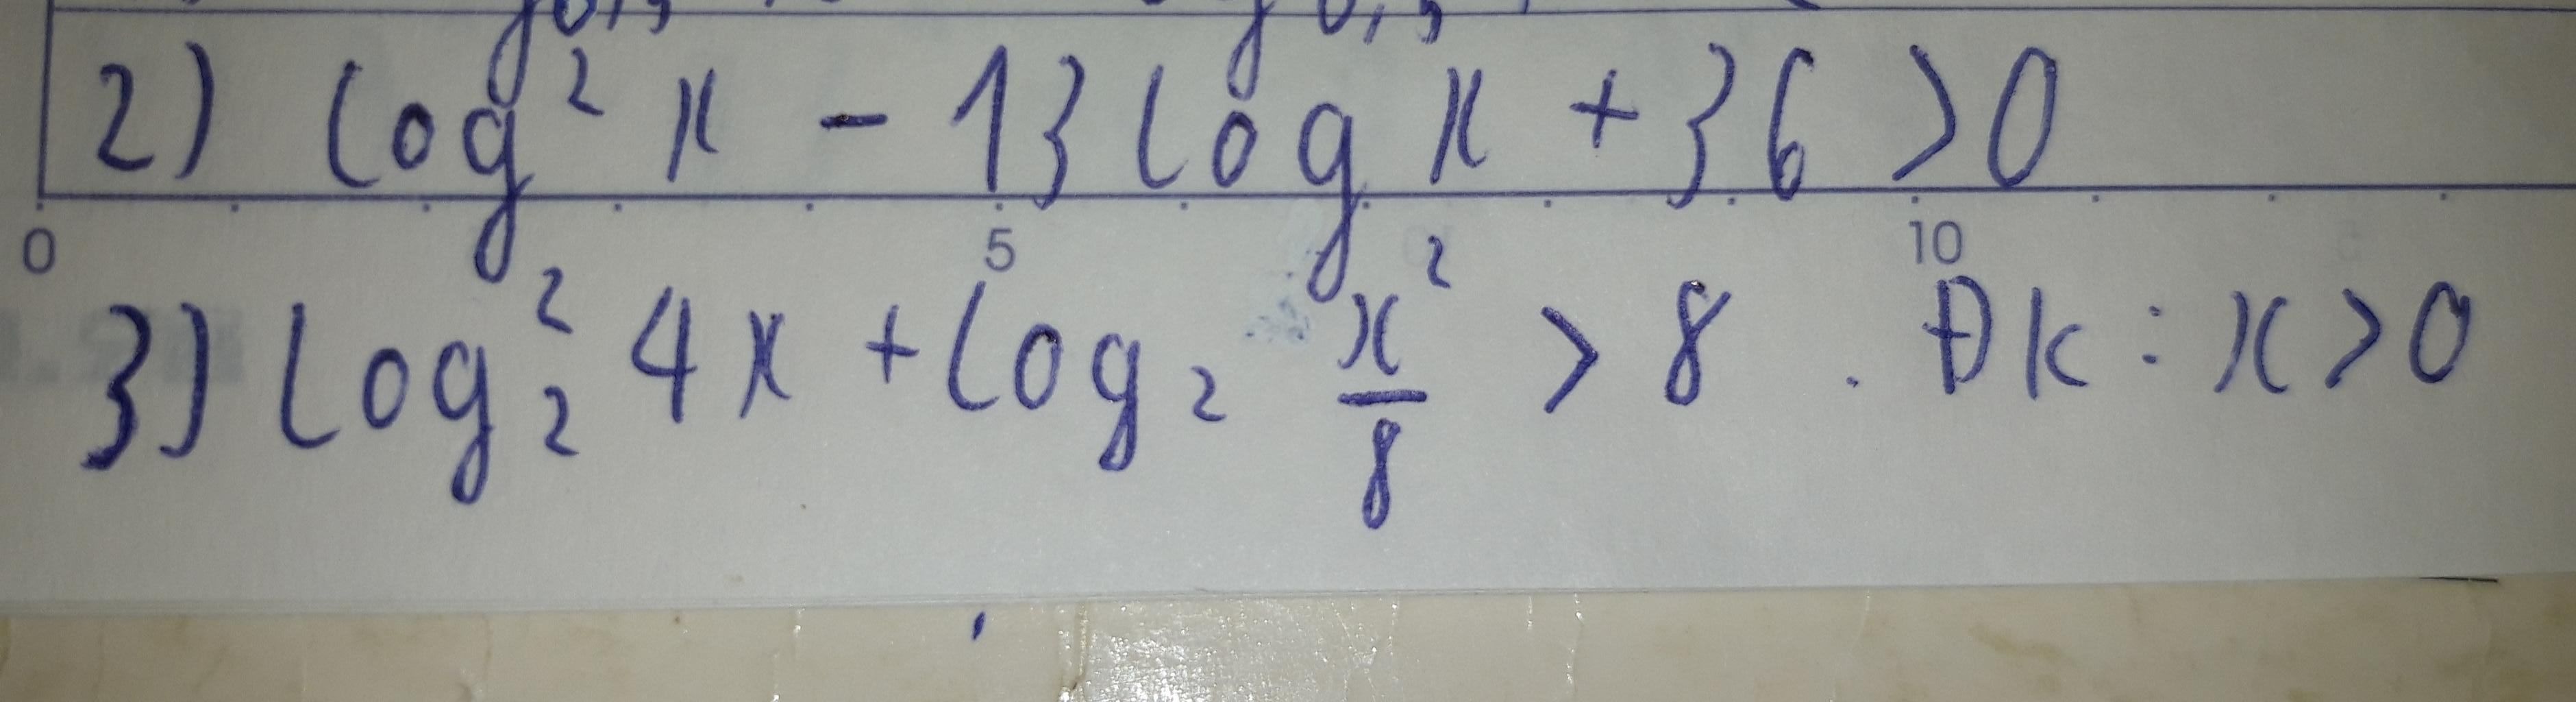 2) log² x - 13 log x + 36 > 0
0 5 10
3) log₂² 4x + log₂ x²/8 > 8 . ĐK : x > 0